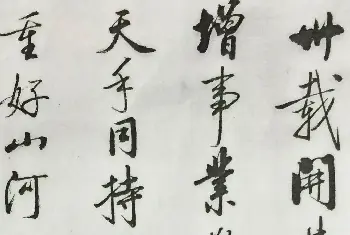 卅载開
增事業
天手同持
重好山河